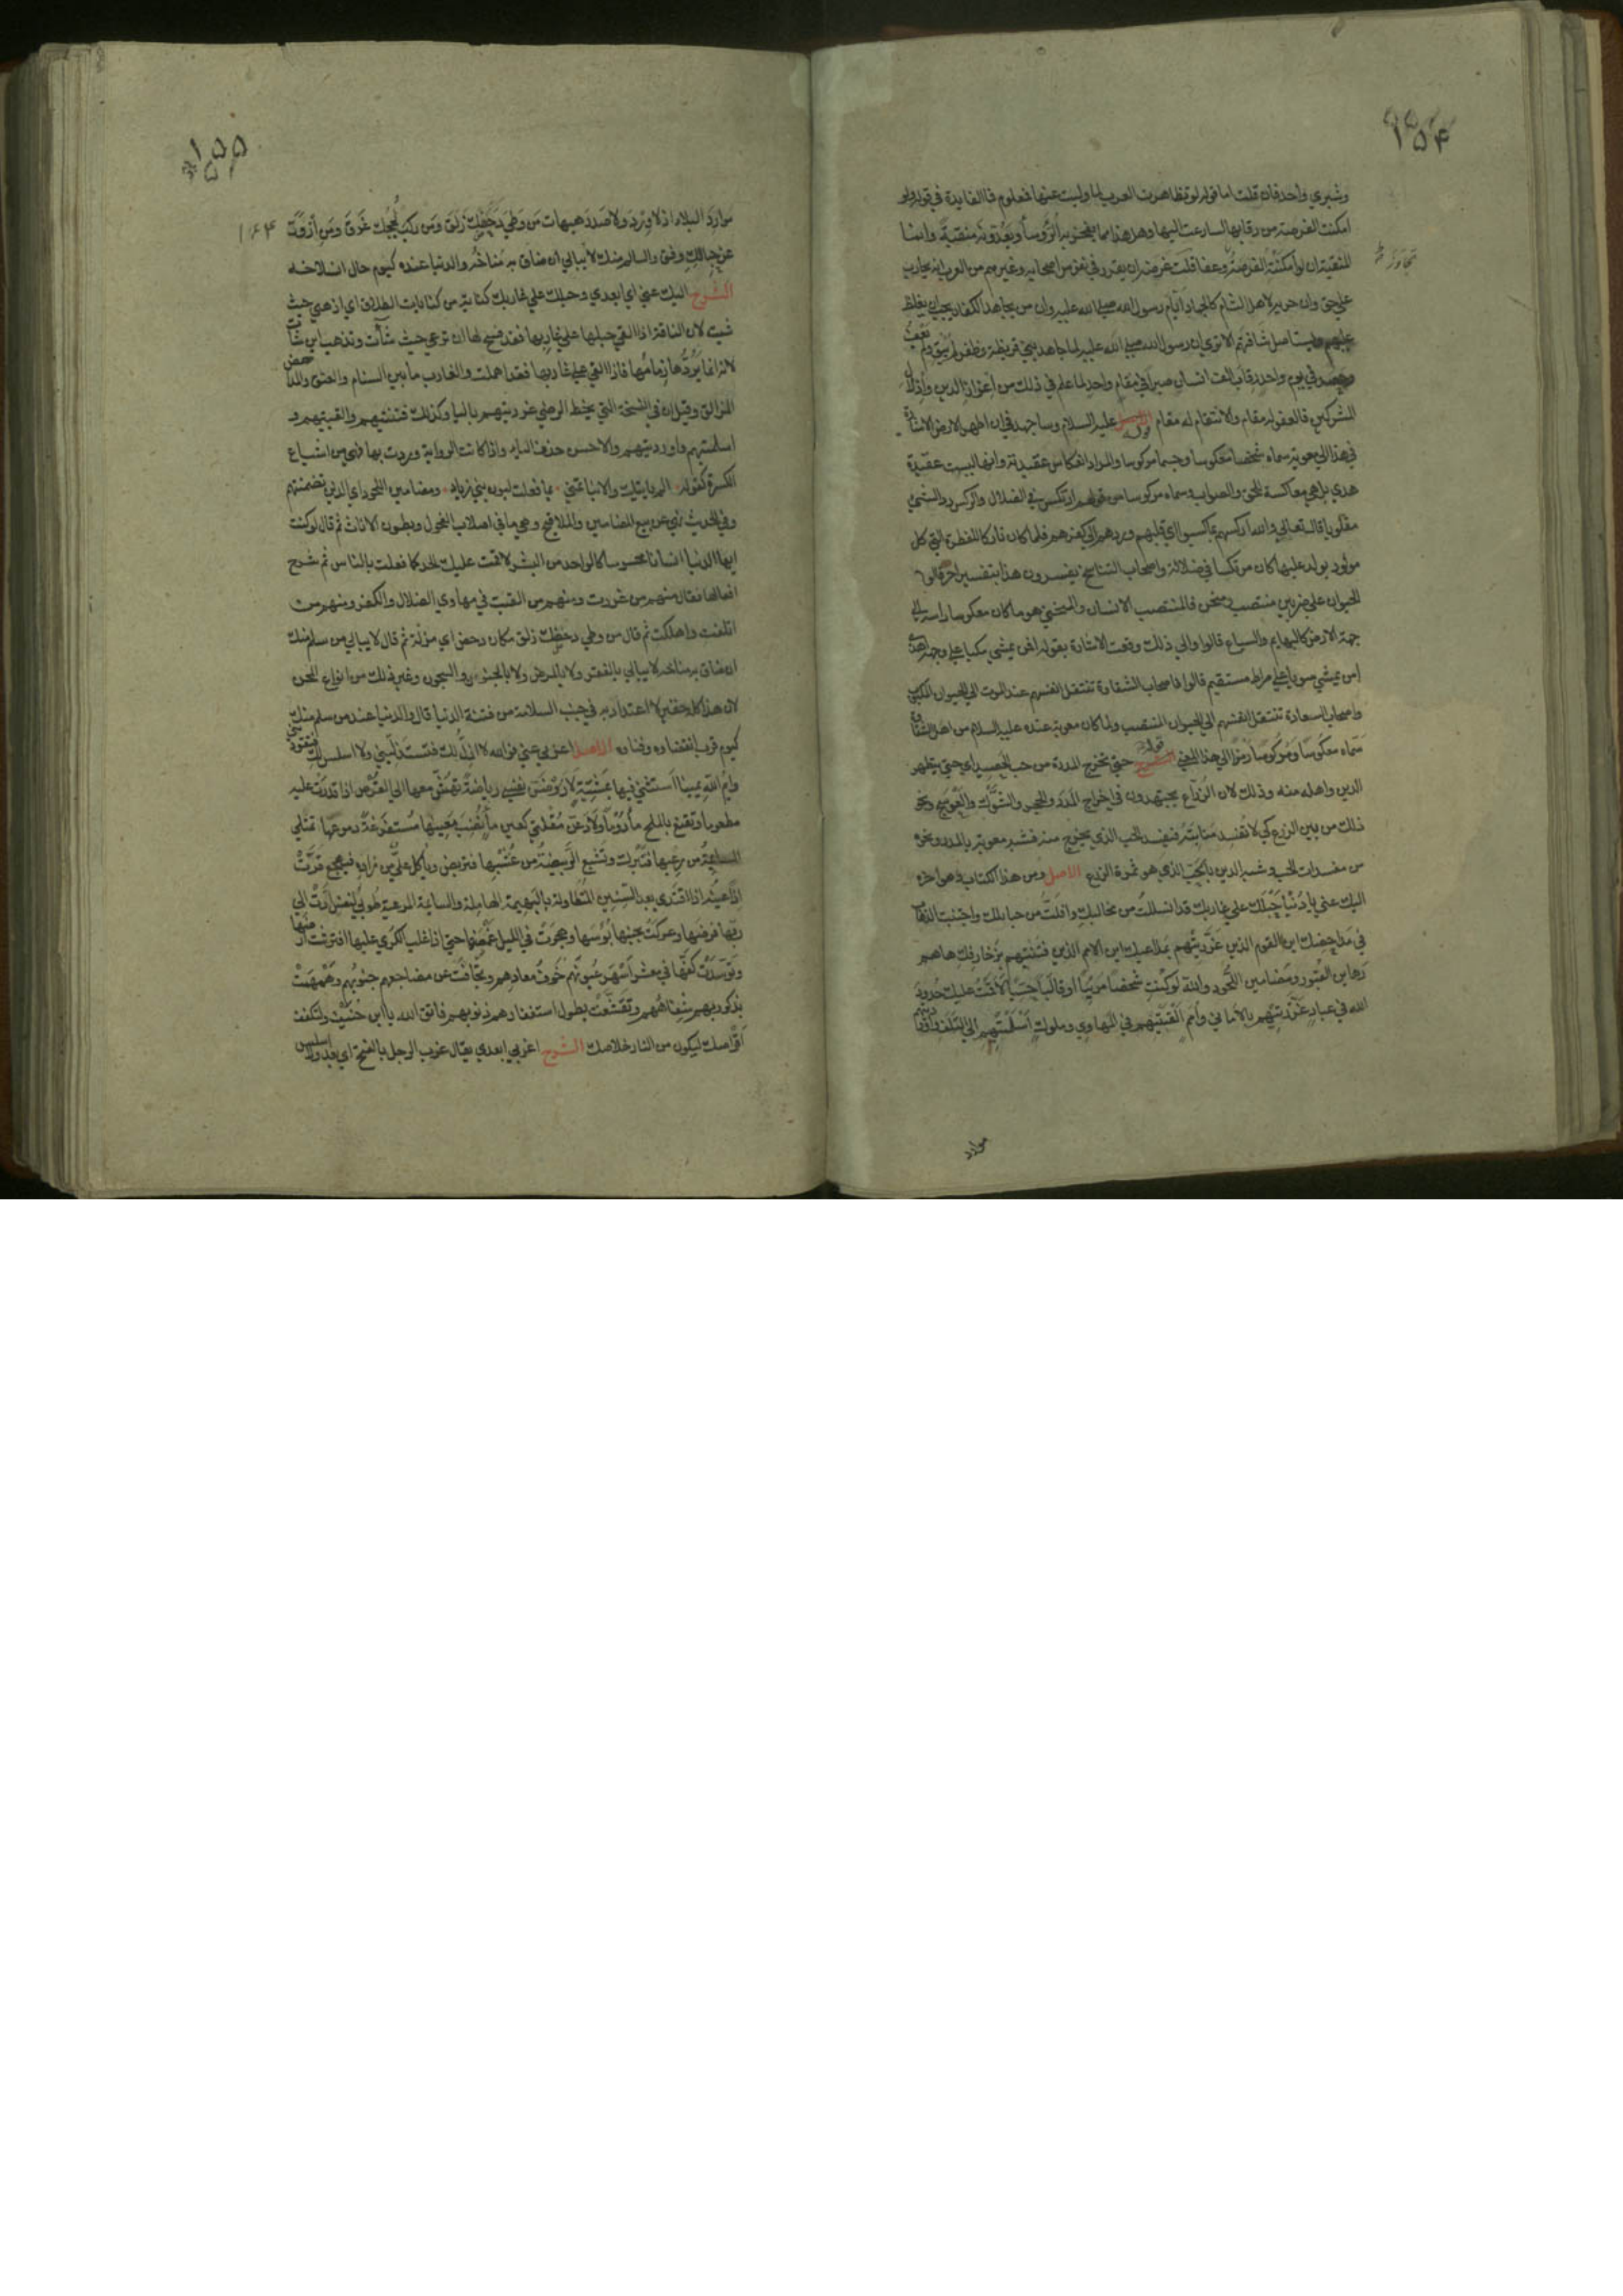 ١٥٤
وشبري واحد فان قلت اما قوله لو تظاهرت العرب لما وليت عنها فمعلوم فما الفايدة في قوله ولو
امكنت الفرصة من رقابها لسارعت اليها وهل هذا مما يفخر به الرؤسا ويعدونه منقبة وانما
المنقبة ان لو امكنته الفرصة وعفا قلت غرضه ان يقرر في نفوس اصحابه وغيرهم من العرب انه يحارب
علي حق وان حربه لاهل الشام كالجهاد ايام رسول الله صلي الله عليه وان من يجاهد الكفار يجب ان يغلظ
عليهم ويستاصل شافتهم الا تري ان رسول الله صلي الله عليه لما جاهد بني قريظة وظفر لم يبق ولم يعف
في يوم واحد رقاب الف انسان صبرا في مقام واحد لما علم في ذلك من اعزاز الدين واذلال
المشركين فالعفو له مقام والانتقام له مقام قوله عليه السلام وساجهد في ان اطهر الارض الاشارة
في هذا الي معوية سماه شخصا معكوسا وجسما مركوسا والمراد انعكاس عقيدته وانها ليست عقيدة
هدي بل هي معاكسة للحق والصواب وسماه مركوسا من قولهم ارتكس في الضلال والركس رد الشيء
مقلوبا قال تعالي والله اركسهم بما كسبوا اي قلبهم وردهم الي كفرهم فلما كان تاركا للفطرة التي كل
مولود يولد عليها كان مرتكسا في ضلالة واصحاب التناسخ يفسرون هذا بتفسير اخر قالوا
الحيوان علي ضربين منتصب ومنحن فالمنتصب الانسان والمنحني هو ما كان معكوسا راسه الي
جهة الارض كالبهايم والسباع قالوا والي ذلك وقعت الاشارة بقوله افمن يمشي مكبا علي وجهه اهدي
امن يمشي سويا علي صراط مستقيم قالوا فاصحاب الشقاوة تنتقل انفسهم عند الموت الي الحيوان المكبوب
واصحاب السعادة تنتقل انفسهم الي الحيوان المنتصب ولما كان معوية عنده عليه السلام من اهل الشقاوة
سماه معكوسا ومركوسا رمزا الي هذا المعني قوله حتي تخرج المدرة من حب الحصيد اي حتي يتطهر
الدين واهله منه وذلك لان الزراع يجتهدون في اخراج المدر والحجر والشوك والعوسج ونحو
ذلك من بين الزرع كي لا تفسد منابته فيفسد الحب الذي يخرج منه فشبه معوية بالمدر ونحوه
من مفسدات الحب وشبه الدين بالحب الذي هو ثمرة الزرع الاصل ومن هذا الكتاب وهو اخره
اليك عني يا دنيا حبلك علي غاربك قد انسللت من مخالبك وافلت من حبايلك واجتنبت الذهاب
في مداحضك اين القوم الذين غررتهم بمداعبك اين الامم الذين فتنتهم بزخارفك ها هم
رهاين القبور ومضامين اللحود والله لو كنت شخصا مرييا او قالبا حسيا لاقمت عليك حدود
الله في عباد غررتهم بالاماني وامم القيتهم في المهاوي وملوك اسلمتهم الي التلف واوردتهم
موارد
١٥٥
١٦٤
موارد البلاء اذ لا ورد ولا صدر هيهات من وطي دحضك زلق ومن ركب لججك غرق ومن ازور
عن حبالك وفق والسالم منك لا يبالي ان ضاق به مناخه والدنيا عنده كيوم حان انسلاخه
الشرح اليك عني اي ابعدي وحبلك علي غاربك كناية من كنايات الطلاق اي اذهبي حيث
شيت لان الناقة اذا القي حبلها علي غاربها فقد فسح لها ان ترعي حيث شآءت وتذهب اين شاءت
لانه انما يردها زمامها فاذا القي علي غاربها فقد اهملت والغارب ما بين السنام والعنق والمداحض
المزالق وقيل ان في النسخة التي بخط الرضي غررتيهم باليا وكذلك فتنتيهم والقيتيهم و
اسلمتيهم واوردتيهم والاحسن حذف الياء واذا كانت الرواية وردت بها فهي من اشباع
الكسرة كقوله الم ياتيك والانبا تنمي بما فعلت لبون بني زياد ومضامين اللحود اي الذين تضمنتهم
وفي الحديث نهي عن بيع المضامين والملاقيح وهي ما في اصلاب الفحول وبطون الاناث ثم قال لو كنت
ايها الدنيا انسانا محسوسا كالواحد من البشر لاقمت عليك الحد كما فعلت بالناس ثم شرح
افعالها فقال منهم من غررت ومنهم من القيت في مهاوي الضلال والكفر ومنهم من
اتلفت واهلكت ثم قال من وطي دحضك زلق مكان دحض اي مزلة ثم قال لا يبالي من سلم منك
ان ضاق به مناخه لا يبالي بالفقر ولا بالمرض ولا بالحبوس والسجون وغير ذلك من انواع المحن
لان هذا كله حقير لا اعتداد به في جنب السلامة من فتنة الدنيا قال والدنيا عند من سلم منك
كيوم قرب انقضاوه وفناوه الاصل اعزبي عني فوالله لا اذل لك فتستذليني ولا اسلس لك فتقوديني
وايم الله يمينا استثني فيها بمشية الله لاروضن نفسي رياضة تهش معها الي القرص اذا قدرت عليه
مطعوما وتقنع بالملح مادوما ولادعن مقلتي كعين ماء نضب معينها مستفرغة دموعها اتمتلي
السايمة من رعيها فتبرك وتشبع الربيضة من عشبها فتربض وياكل علي من زاده فيهجع قرت
اذا عينه اذا اقتدي بعد السنين المتطاولة بالبهيمة الهاملة والسايمة المرعية طوبي لنفس ادت الي
ربها فرضها وعركت بجنبها بوسها وهجرت في الليل غمضها حتي اذا غلب الكري عليها افترشت ارضها
وتوسدت كفها في معشر اسهر عيونهم خوف معادهم وتجافت عن مضاجعهم جنوبهم وهمهمت
بذكر ربهم شفاههم وتقشعت بطول استغفارهم ذنوبهم فاتق الله يا ابن حنيف ولتكفف
اقراصك ليكون من النار خلاصك الشرح اعزبي ابعدي يقال عزب الرجل بالفتح اي بعد ولا اسلس